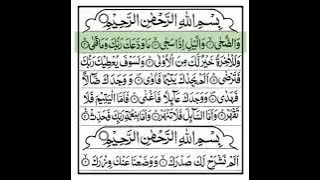 بِسْمِ اللهِ الرَّحْمٰنِ الرَّحِيْمِ
وَالضُّحٰى ۙ وَالَّيْلِ اِذَا سَجٰى ۙ مَا وَدَّعَكَ رَبُّكَ وَمَا قَلٰى ؕ
وَلَلْاٰخِرَةُ خَيْرٌ لَّكَ مِنَ الْاُوْلٰى ؕ وَلَسَوْفَ يُعْطِيْكَ رَبُّكَ
فَتَرْضٰى ؕ اَلَمْ يَجِدْكَ يَتِيْمًا فَاٰوٰى ۪ وَوَجَدَكَ ضَآلًّا
فَهَدٰى ۪ وَوَجَدَكَ عَآئِلًا فَاَغْنٰى ؕ فَاَمَّا الْيَتِيْمَ فَلَا
تَقْهَرْ ؕ وَاَمَّا السَّآئِلَ فَلَا تَنْهَرْ ؕ وَاَمَّا بِنِعْمَةِ رَبِّكَ فَحَدِّثْ
بِسْمِ اللهِ الرَّحْمٰنِ الرَّحِيْمِ
اَلَمْ نَشْرَحْ لَكَ صَدْرَكَ ۙ وَوَضَعْنَا عَنْكَ وِزْرَكَ ۙ